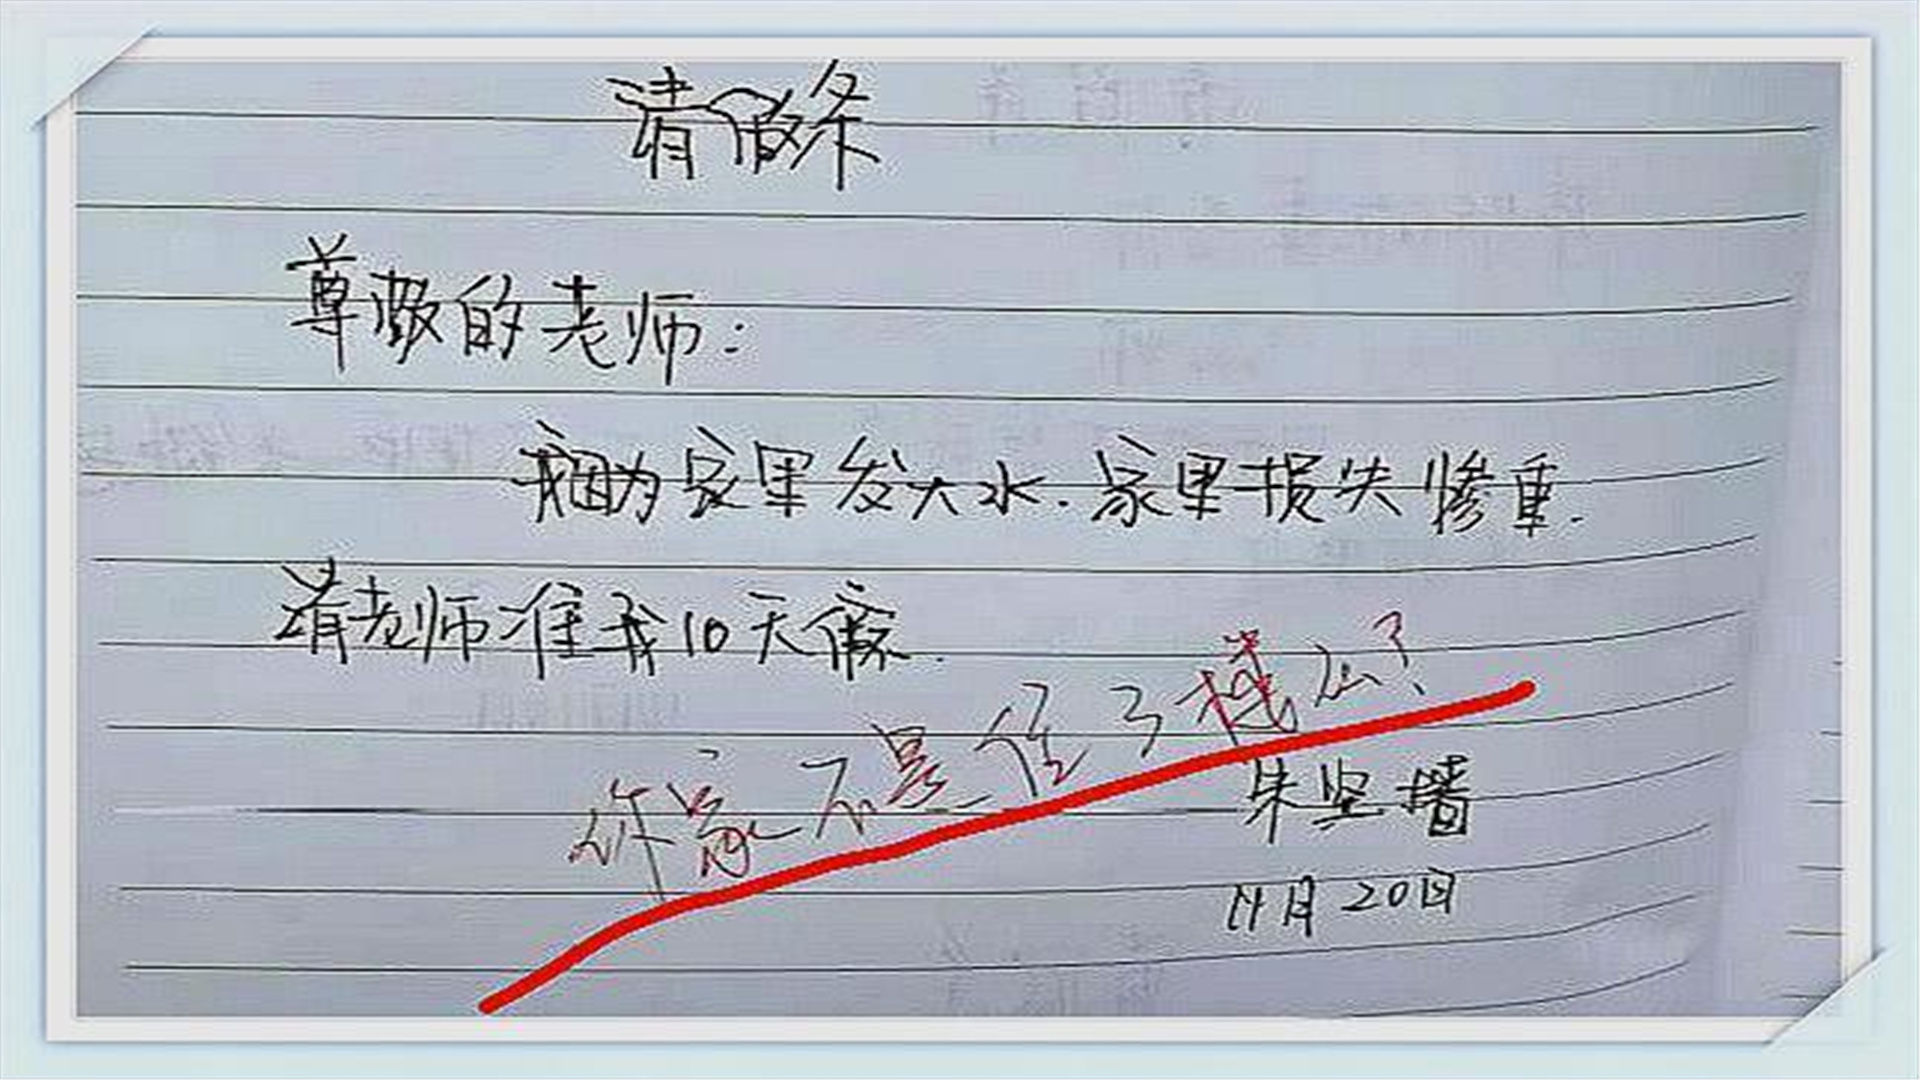 请假条
尊敬的老师：
我因为家里发大水.家里损失惨重.
请老师准我10天假.
你家不是住了楼么?
朱坚墙
11月20日